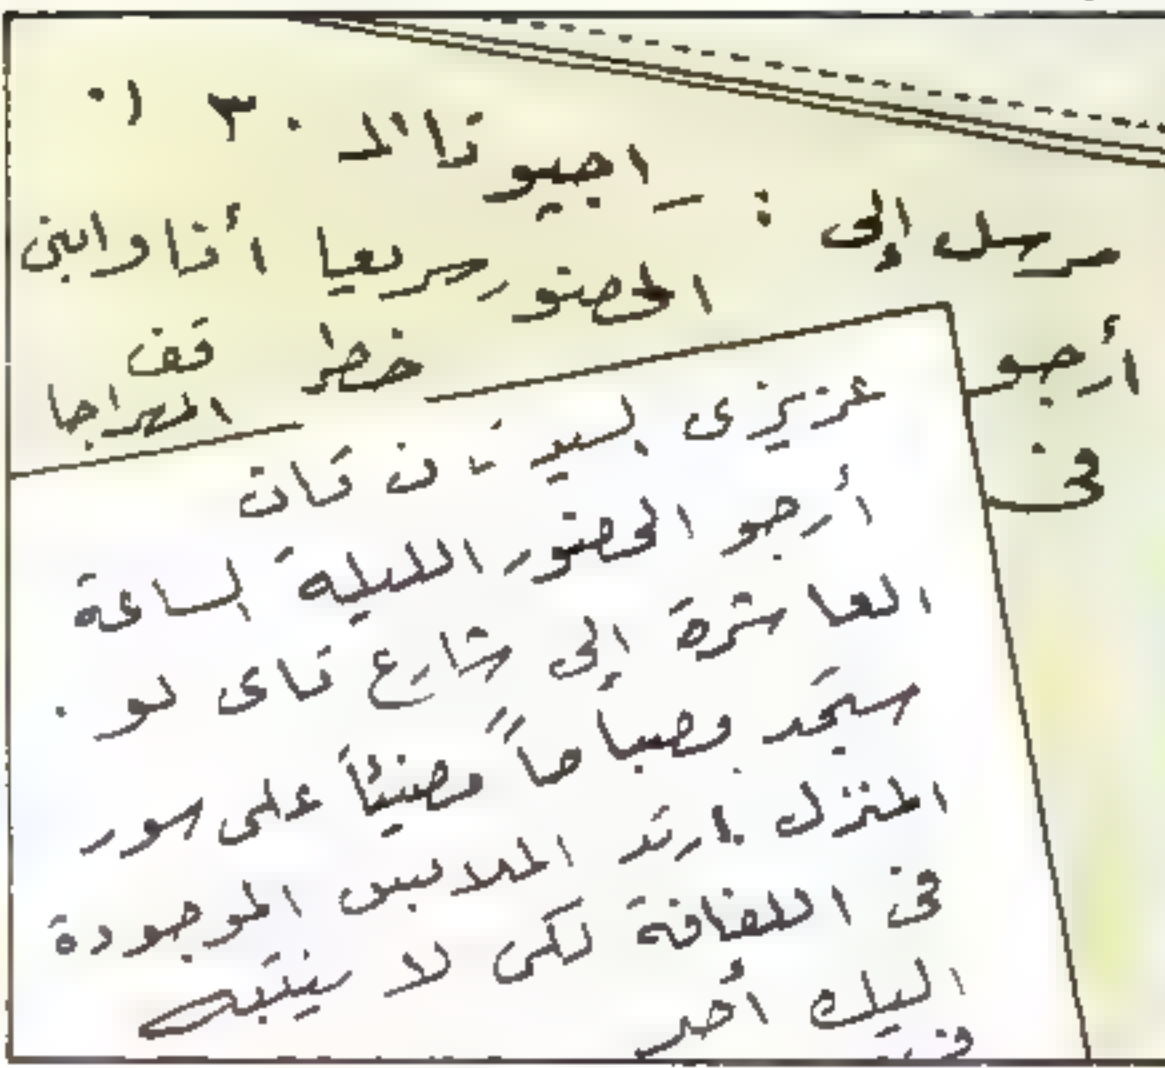 راجيوتاالد ٣٠ ١٠
مرسل إلى :
أرجو الحضور سريعا أنا وابنى
فى خطر قف
المهراجا
عزيزى السيد تان تان
أرجو الحضور الليلة الساعة
العاشرة إلى شارع تاى لو .
ستجد مصباحاً مضيئاً على سور
المنزل . ارتد الملابس الموجودة
فى اللفافة لكى لا ينتبه
اليك أحد